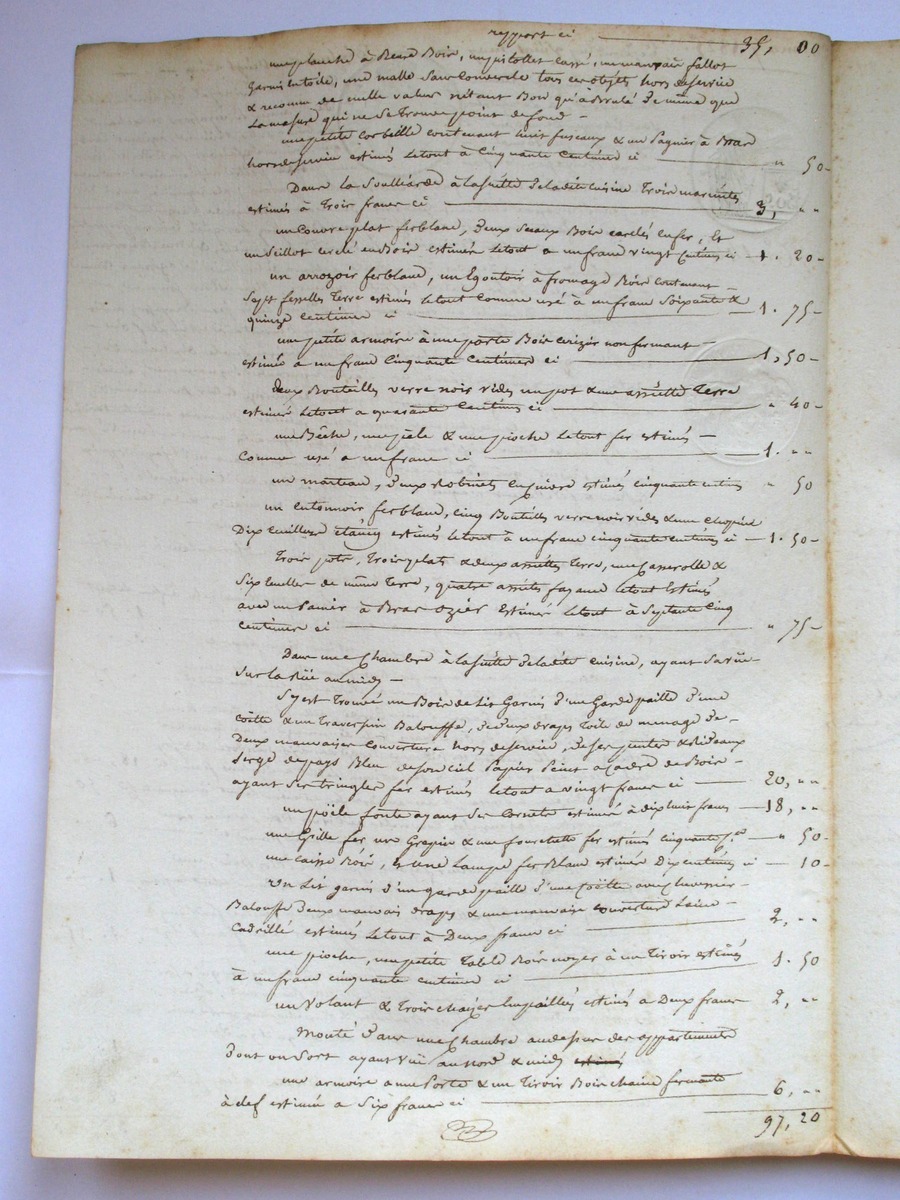 report ci 35, 00
une planche à Bois, un pistollet cassé, un mauvais fallot
garni en toile, une malle sans couvercle tous ces objets hors de service
& reconnu de nulle valeur n'étant Bon qu'à Brulé de même que
la masure qui ne se trouve point de fond -
une petite Corbeille contenant huit fuseaux & un Pagnier à Bras
hors de service estimés Le tout à Cinquante Centimes ci " 50-
Dans la Souillarde à la suitte de la dite Cuisine Trois marmites
estimés à Trois francs ci 3, ""
un Couvre plat ferblanc, deux Seaux Bois cerclés en fer, Et
un Seillot cerclé en Bois estimés Le tout à un franc vingt Centimes ci 1. 20-
un arrozoir ferblanc, un Egoutoir à fromage Bois Contenant -
Sept fesselles Terre estimés Le tout Comme usé à un franc Soixante &
quinze Centimes ci 1. 75-
une petite armoire à une porte Bois cerizier non fermant -
estimée à un franc Cinquante Centimes ci 1, 50-
Deux Bouteilles verre noir vides un pot & une assiette Terre
estimés Le tout à quarante Centimes ci " 40-
une Bêche, une pèle & une pioche Le tout fer estimés -
Comme usé à un franc ci 1. ""
un marteau, deux Robinets en cuivre estimés cinquante centimes " 50
un entonnoir ferblanc, cinq Bouteilles verre noir vides & une Chopine
Dix Cuillers étaing estimés Le tout à un franc cinquante Centimes ci 1. 50-
Trois pots, Trois plats & deux assiettes Terre, une Casserolle &
Six de même Terre, quatre assiettes fayance Le tout Estimés
avec un Panier à Bras Ozier Estimés Le tout à Septante Cinq
Centimes ci " 75-
Dans une Chambre à la suitte de la dite Cuisine, ayant Sa vüe
Sur la Rüe au midy -
S'y est Trouvé un Bois de Lit Garni d'un Garde paille d'une
Coëtte & un Traversin Balouffe, de deux draps Toile de menage de -
Deux mauvaises Couverture hors de service, de ses pentes & Rideaux
Serge de pays Bleu de son Ciel Papier Peint à Cadre de Bois -
ayant Ses tringles fer estimés Le tout à vingt francs ci 20, ""
un pöele fonte ayant Ses Cornets estimés à dix huit francs 18, ""
une Grille fer un Grapin & une fourchette fer estimés cinquante C. " 50-
une caisse Bois, Et une Lampe fer Blanc estimés Dix centimes ci 10-
Un Lit garni d'un garde paille d'une Coëtte avec Chevessier -
Balouffe deux mauvais draps & une mauvaise Couverture Laine -
Cadrillé estimés Le tout à Deux francs ci 2, ""
une pioche, une petite Table Bois noyer à un Tiroir estimés
à un franc cinquante centimes ci 1. 50
un Volant & Trois chaises Empaillés estimés à Deux francs 2, ""
Monté dans une Chambre au dessus des appartements
dont on Sort ayant vüe au nord & midy estimés
une armoire à une Porte & un Tiroir Bois chaine fermante
à clef estimée à Six francs ci 6, ""
97, 20